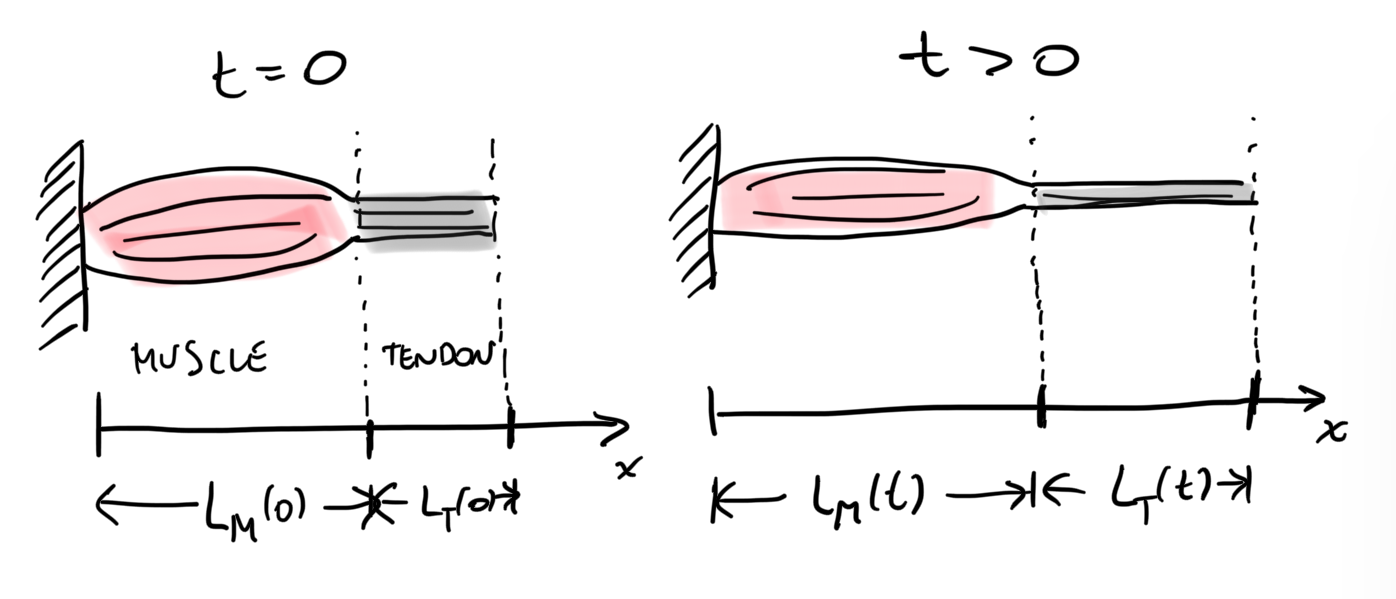 t = 0
t > 0
MUSCLE
TENDON
x
x
L_M(0)
L_T(0)
L_M(t)
L_T(t)